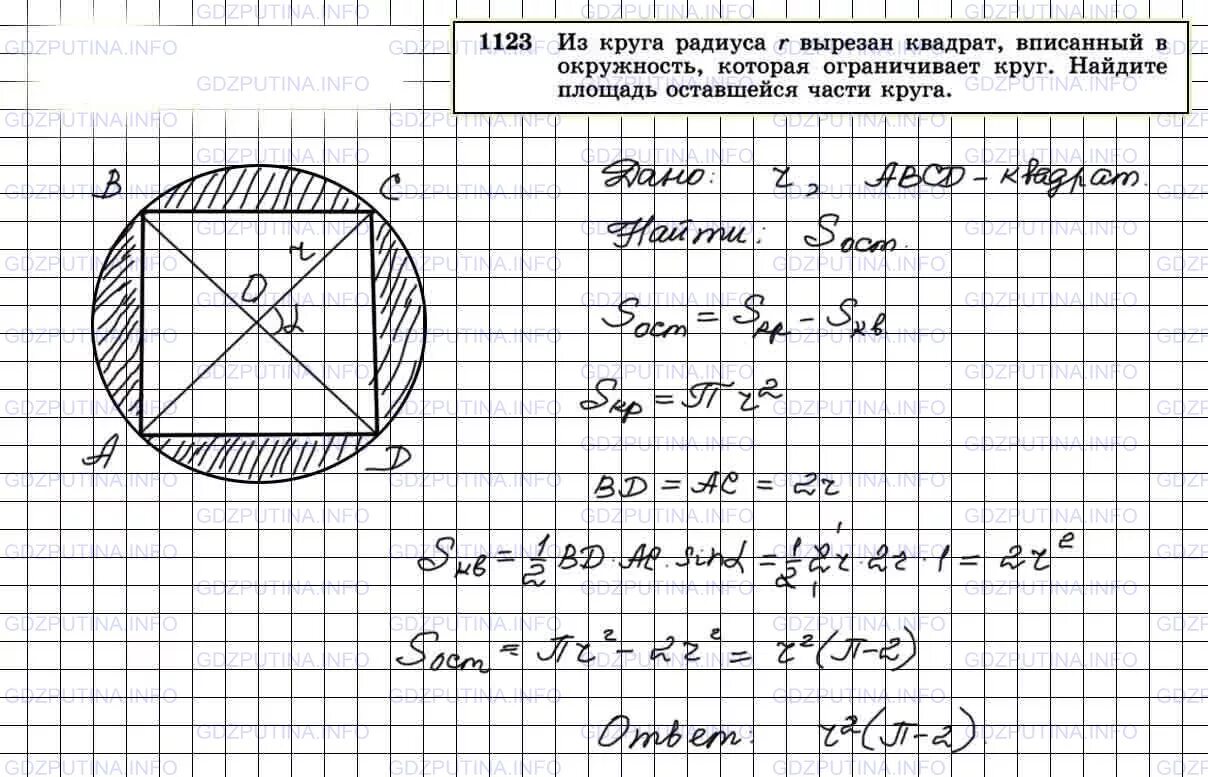 1123 Из круга радиуса r вырезан квадрат, вписанный в
окружность, которая ограничивает круг. Найдите
площадь оставшейся части круга.
B
C
r
O
α
A
D
Дано: r, ABCD - квадрат.
Найти: Sост.
Sост = Sкр - Sкв
Sкр = П r²
BD = AC = 2r
Sкв = 1/2 BD · AC · sinα = 1/2 2r · 2r · 1 = 2r²
Sост = Пr² - 2r² = r²(П-2)
Ответ: r²(П-2).
GDZPUTINA.INFO